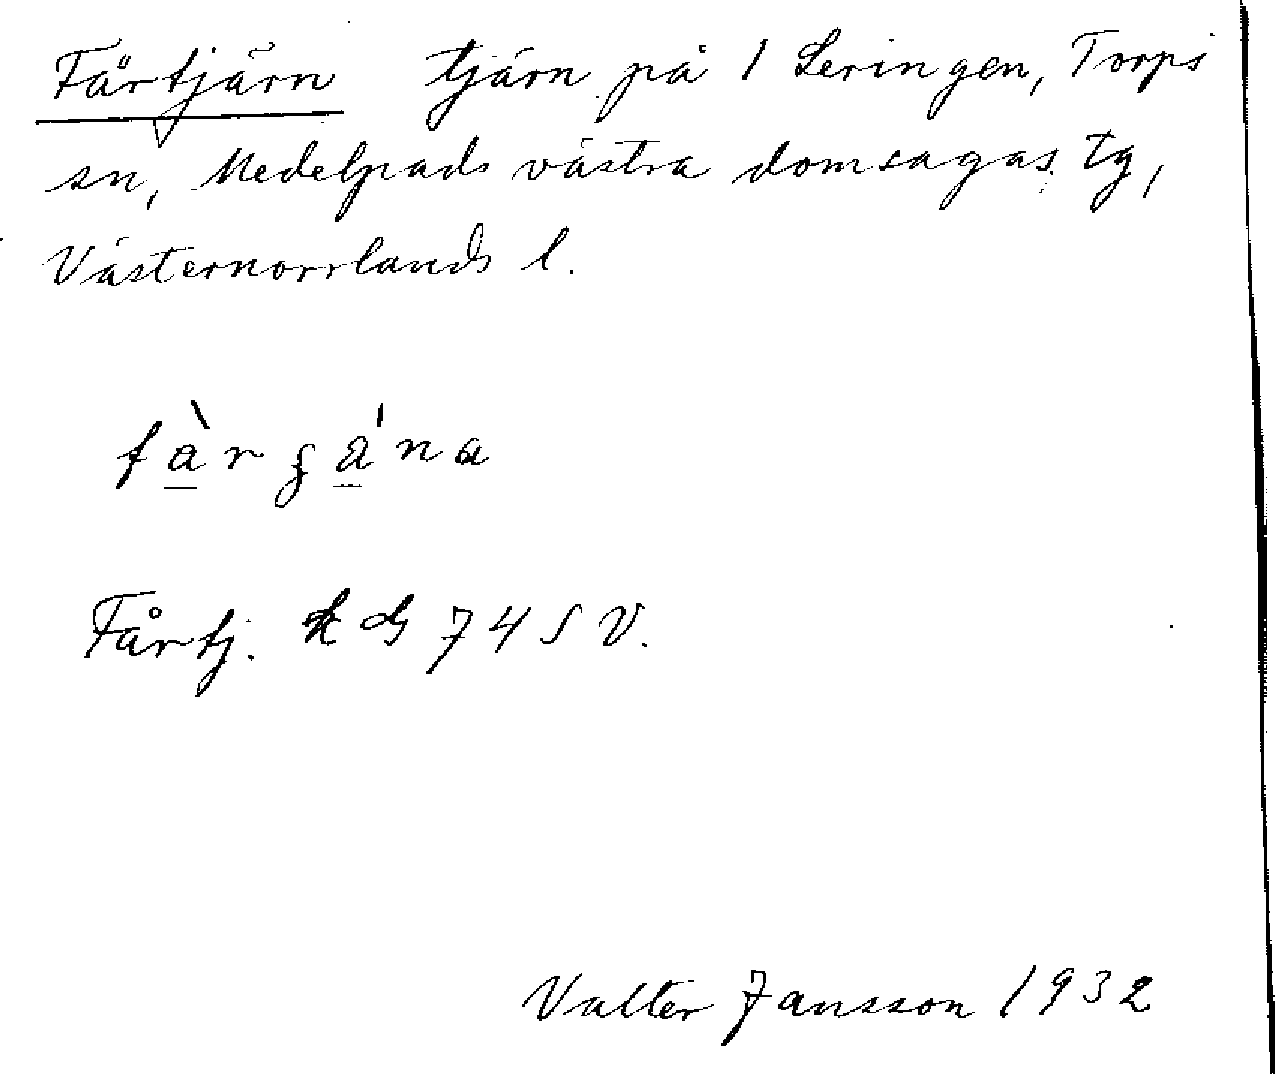 Fårtjärn tjärn på 1 Leringen, Torps
sn, Medelpads västra domsagas tg,
Västernorrlands l.
Fårtj. 74 SV.
Valter Jansson 1932